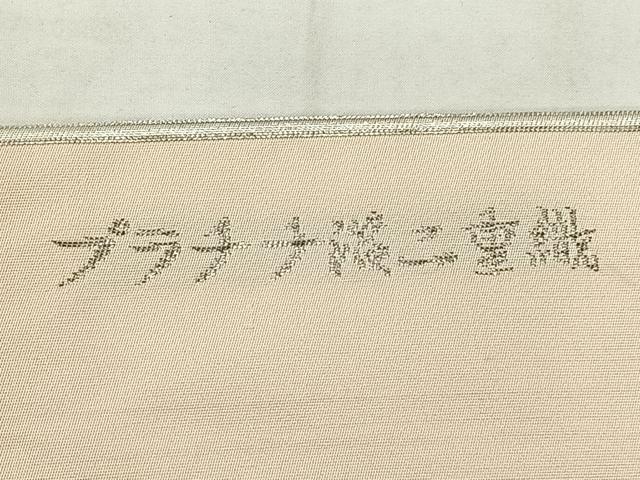 プラチナ綴二重織